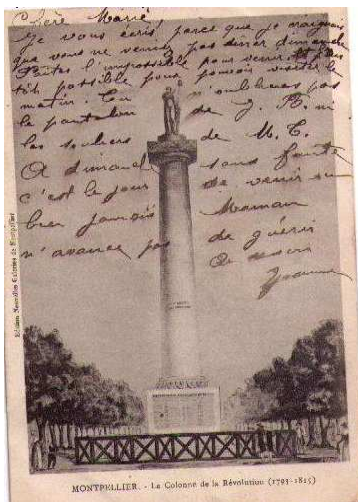 Chère Marie,
Je vous écris, parce que je craignais
que vous ne veniez pas dîner dimanche
Faites l'impossible pour venir
tôt possible pour pouvoir visiter le
matin. Tu n'oublieras pas
le pantalon de J. B. ni
les souliers de M. C.
A dimanche sans faute
c'est le jour de venir ou
bien jamais Maman
n'avance pas de guérir
Au revoir
Yvonne
Edition Nouvelles Galeries de Montpellier
MONTPELLIER. - La Colonne de la Révolution (1793-1815)